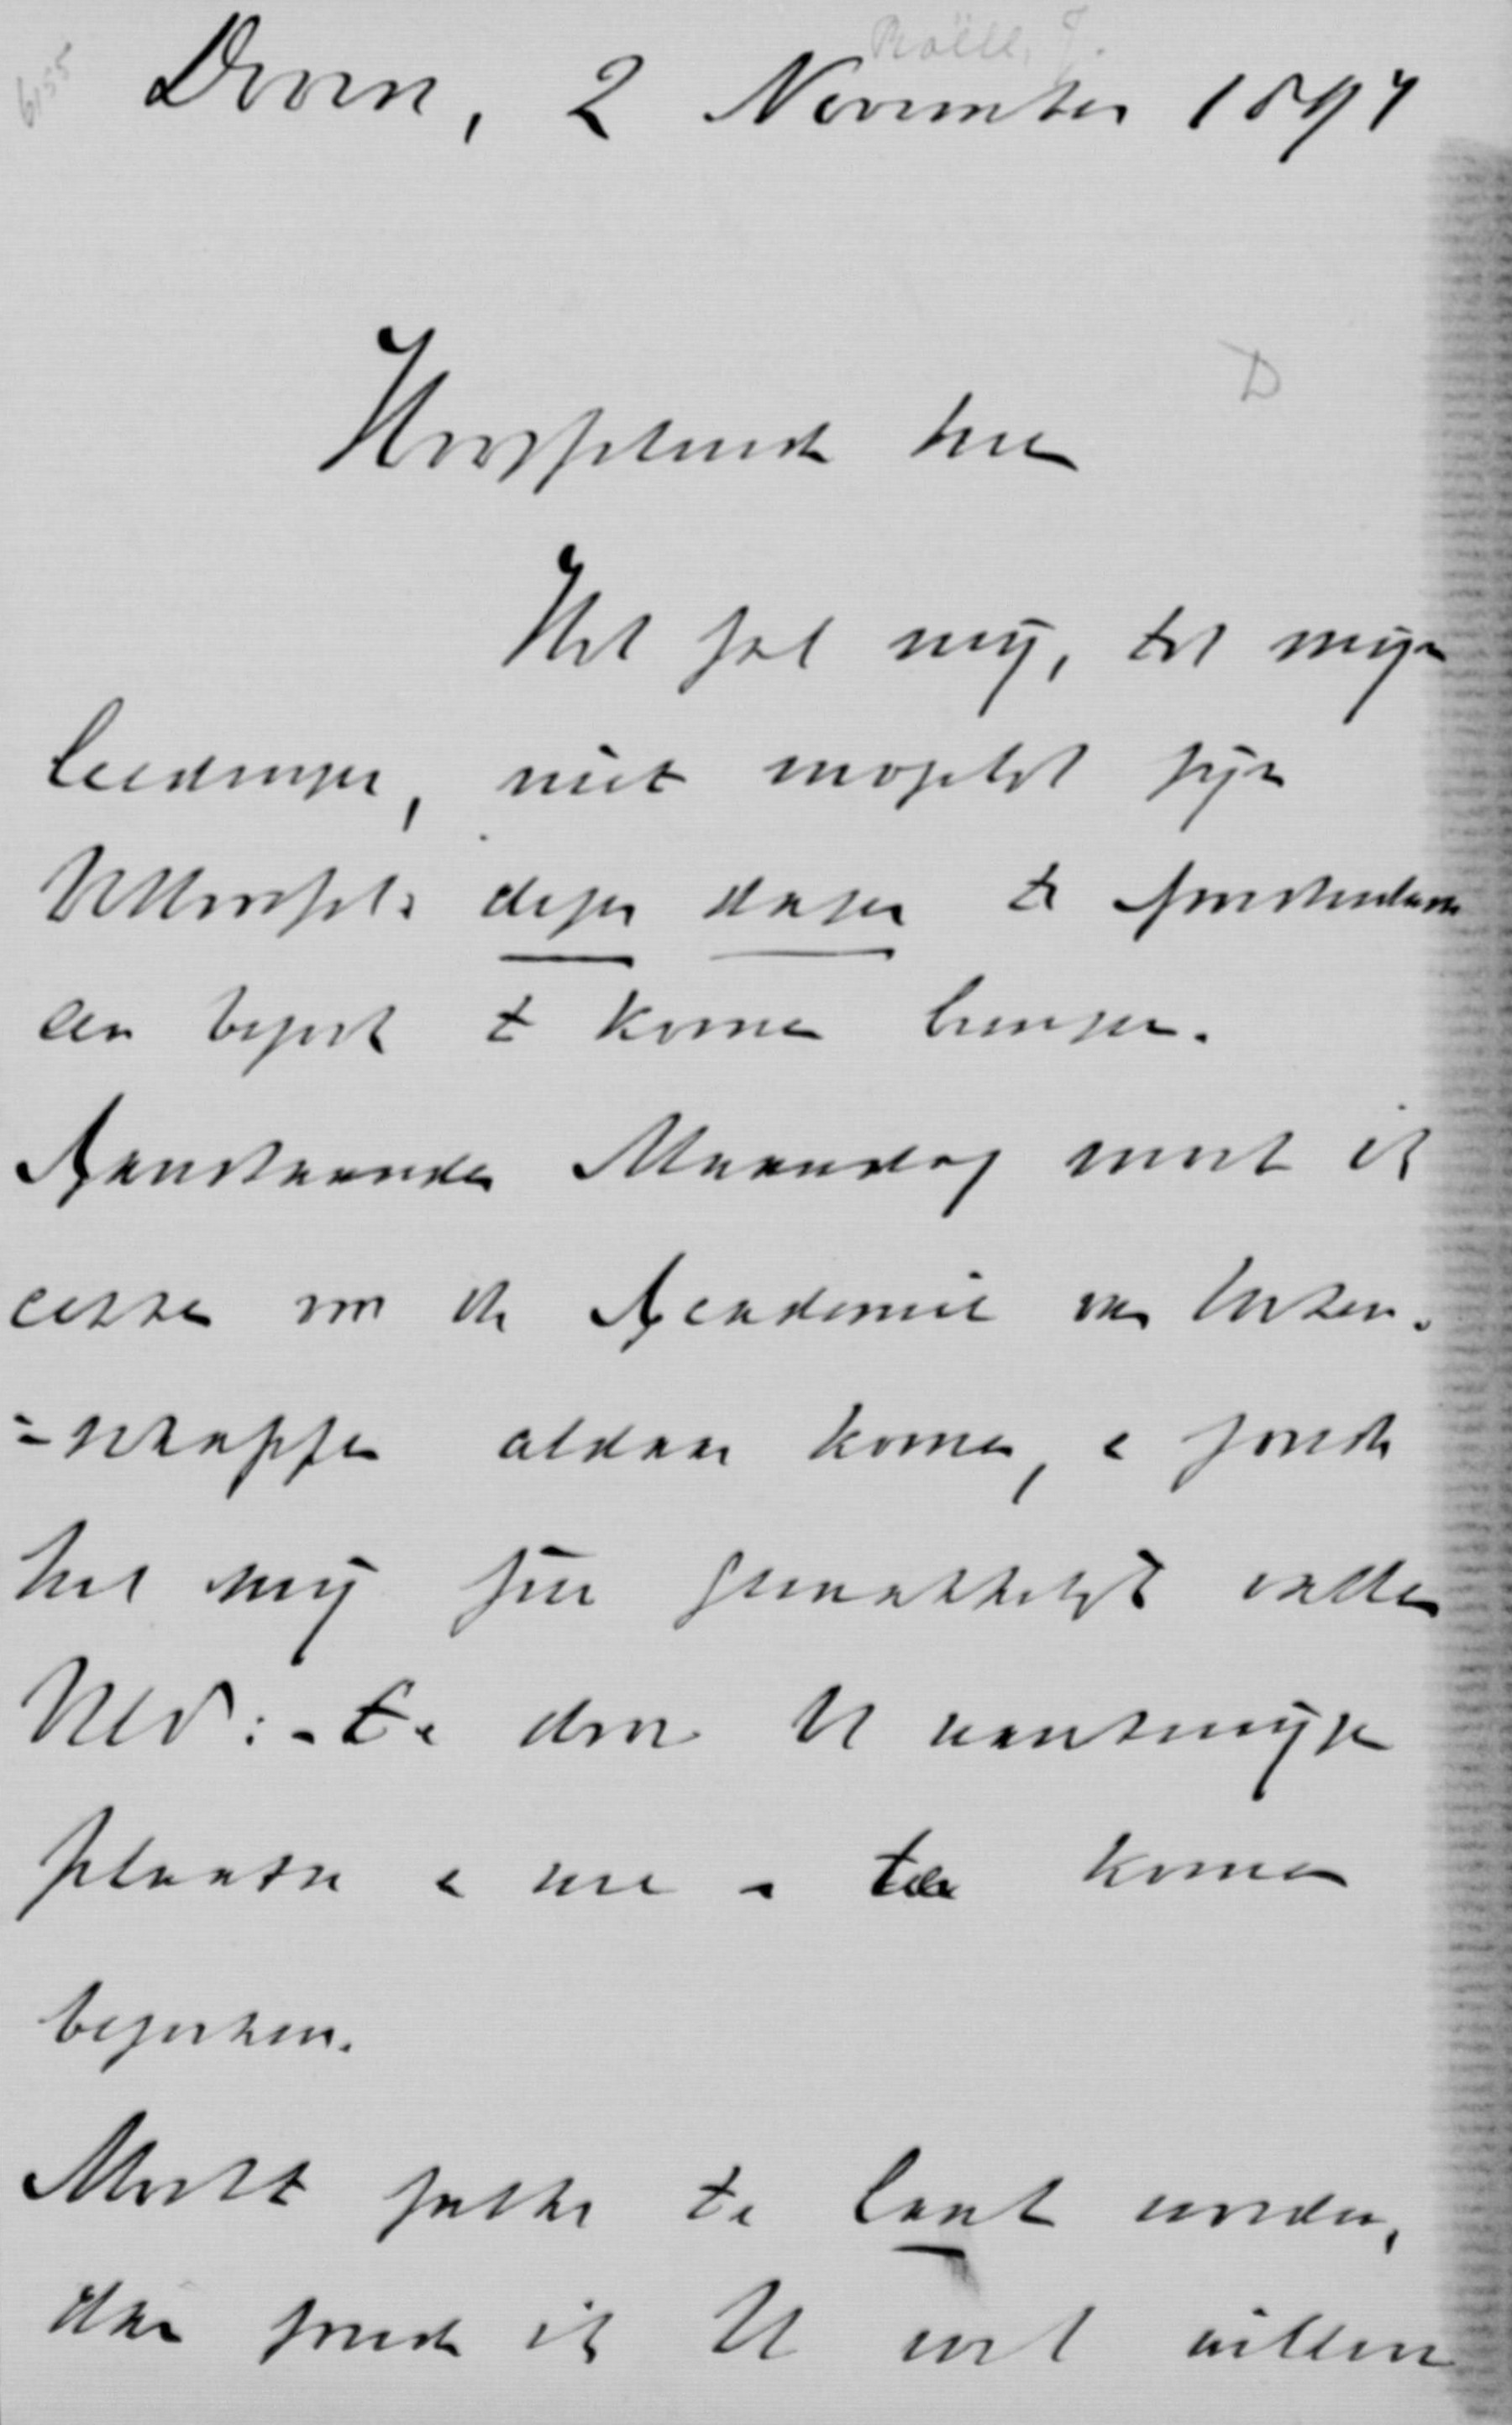 6155
Röell, J.
Doorn, 2 November 1894
D
Hooggeleerde heer
Het zal mij, tot mijn
leedwezen, niet mogelijk zijn
UHoogGel: dezer dagen te Amsterdam
een bezoek te komen brengen.
Aanstaande Maandag moet ik
echter in de Academie van Weten-
=schappen aldaar komen, en zoude
het mij zeer gemakkelijk vallen
UEd: - te door U aantewijzen
plaatse en ure - te komen
bezoeken.
Mocht zulks te laat worden,
dan zoude ik U wel willen